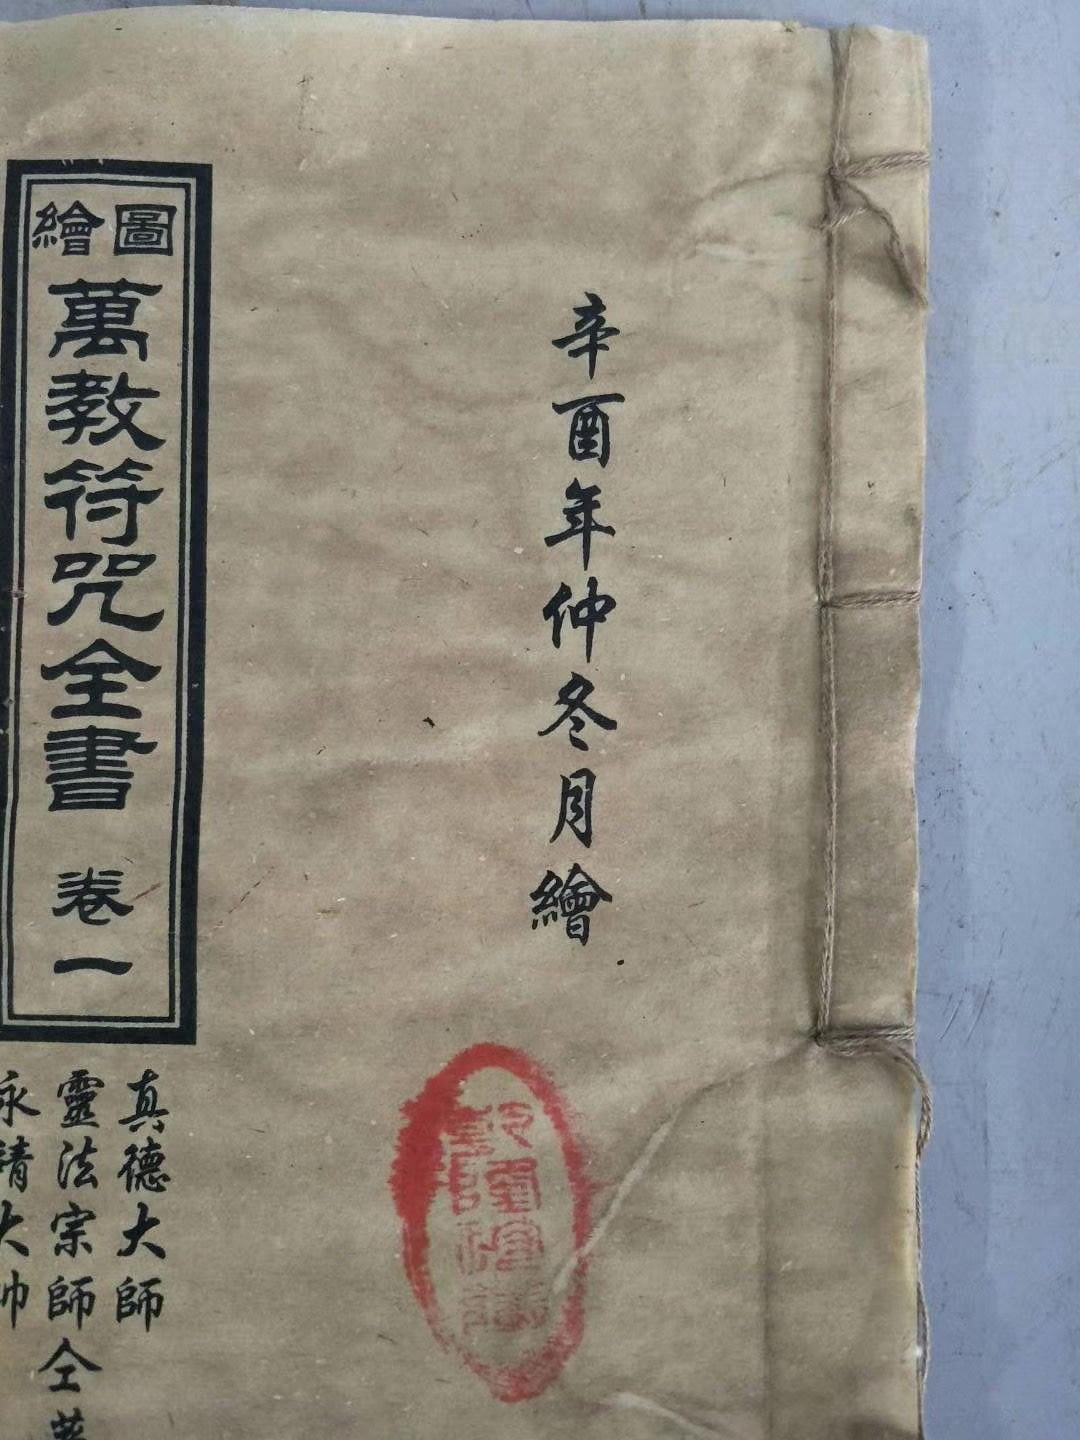 辛酉年仲冬月繪
圖繪
萬教符咒全書 卷一
真德大師
靈法宗師仝著
永靖大師